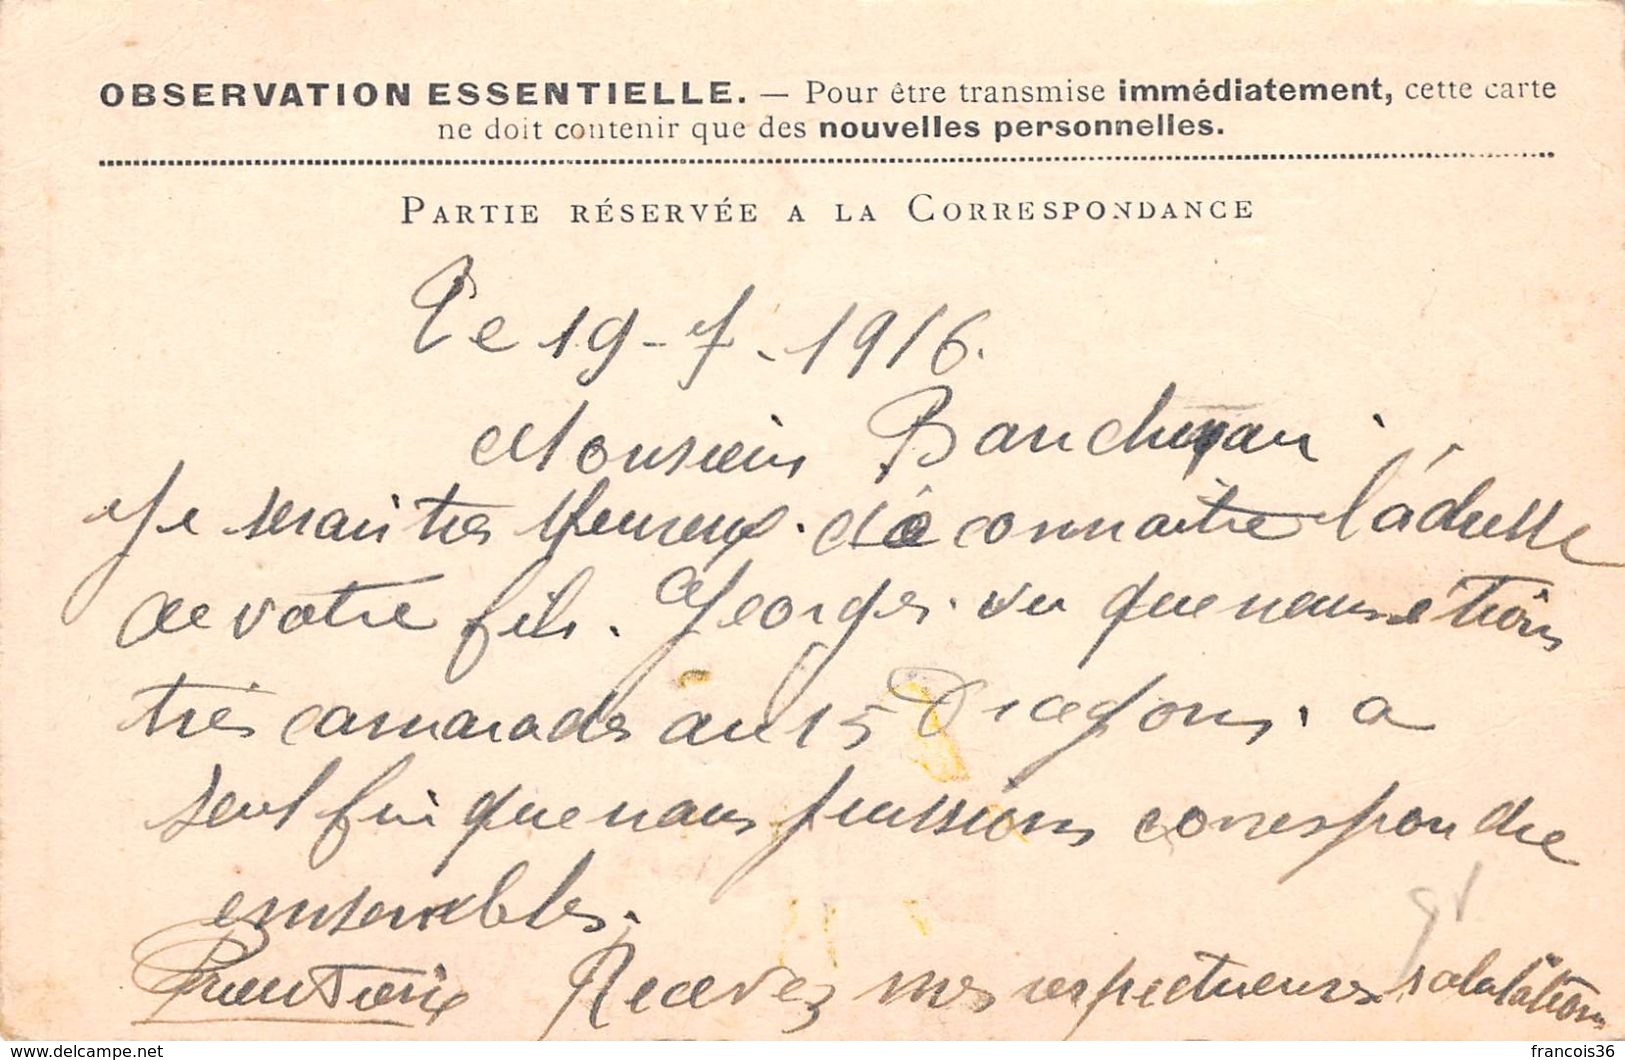 OBSERVATION ESSENTIELLE. — Pour être transmise immédiatement, cette carte
ne doit contenir que des nouvelles personnelles.
PARTIE RÉSERVÉE A LA CORRESPONDANCE
Le 19-7-1916.
Monsieur
Je serai très heureux de connaitre l'adresse
de votre fils. Georges. vu que nous etions
très camarades au 15 Dragons. a
seul fin que nous puissions correspondre
ensembles.
Recevez mes respectueuses salutations
www.delcampe.net
francois36